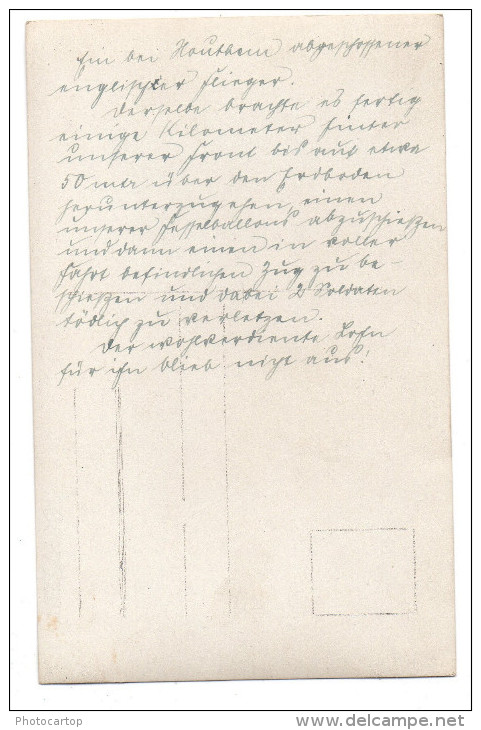 Ein bei Houthem abgeschossener
englischer Flieger.
Derselbe brachte es fertig
einige Kilometer hinter
unserer Front bis auf etwa
50 mtr über den Erdboden
herunterzugehen, einen
unserer Fesselballons abzuschießen
und dann einen in voller
Fahrt befindlichen Zug zu be-
schießen und dabei 2 Soldaten
tödlich zu verletzen.
Der wohlverdiente Lohn
für ihn blieb nicht aus!
Photocartop
www.delcampe.net